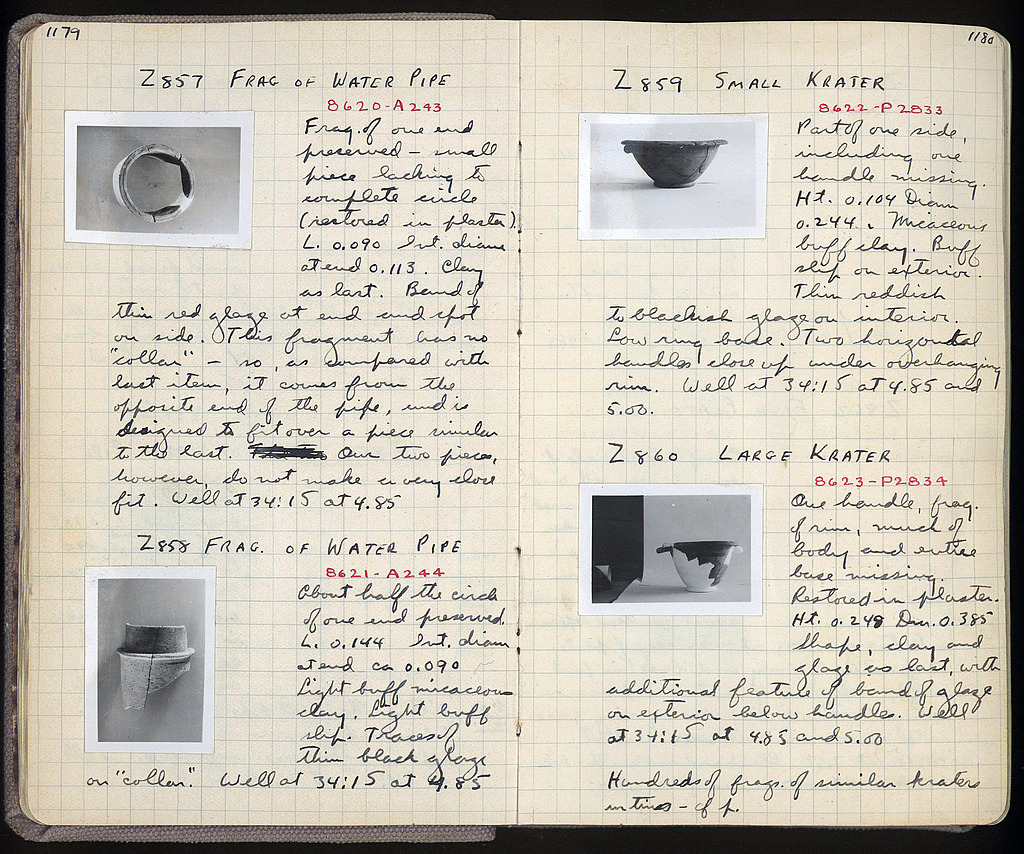 1179
Z857 FRAG OF WATER PIPE
8620-A243
Frag. of one end
preserved - small
piece lacking to
complete circle
(restored in plaster).
L. 0.090 Int. diam
at end 0.113. Clay
as last. Band of
thin red glaze at end and spot
on side. This fragment has no
"collar" - so, as compared with
last item, it comes from the
opposite end of the pipe, and is
designed to fit over a piece similar
to the last. Our two pieces,
however, do not make a very close
fit. Well at 34:15 at 4.85
Z858 FRAG. OF WATER PIPE
8621-A244
About half the circle
of one end preserved.
L. 0.144 Int. diam
at end ca 0.090
Light buff micaceous
clay. Light buff
slip. Traces of
thin black glaze
on "collar". Well at 34:15 at 4.85
1180
Z859 SMALL KRATER
8622-P2833
Part of one side,
including one
handle missing.
Ht. 0.104 Diam
0.244. Micaceous
buff clay. Buff
slip on exterior.
Thin reddish
to blackish glaze on interior.
Low ring base. Two horizontal
handles close up under overhanging
rim. Well at 34:15 at 4.85 and
5.00.
Z860 LARGE KRATER
8623-P2834
One handle, frag.
of rim, much of
body and entire
base missing.
Restored in plaster.
Ht. 0.248 Dm. 0.385
Shape, clay and
glaze as last, with
additional feature of band of glaze
on exterior below handles. Well
at 34:15 at 4.85 and 5.00
Hundreds of frags. of similar kraters
in tins - cf p.